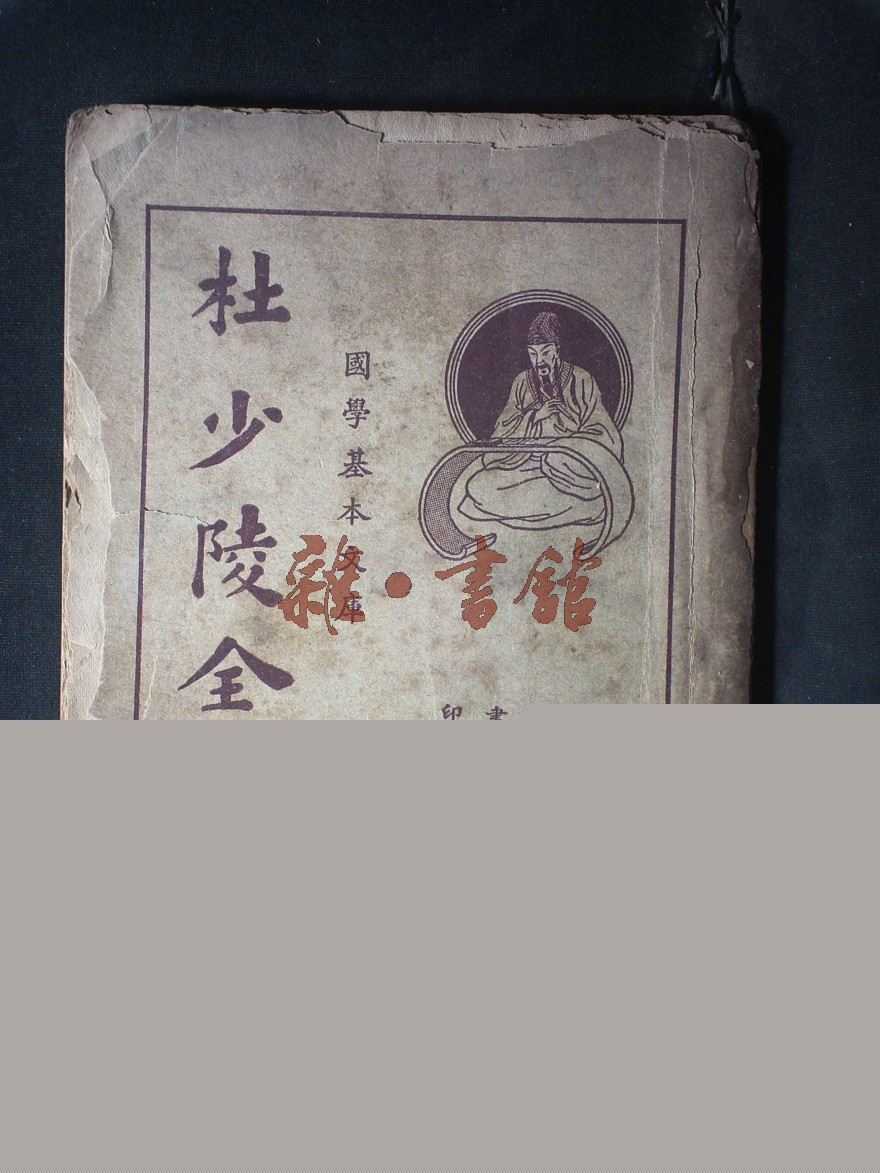 杜少陵全
國學基本文庫
雜·書館